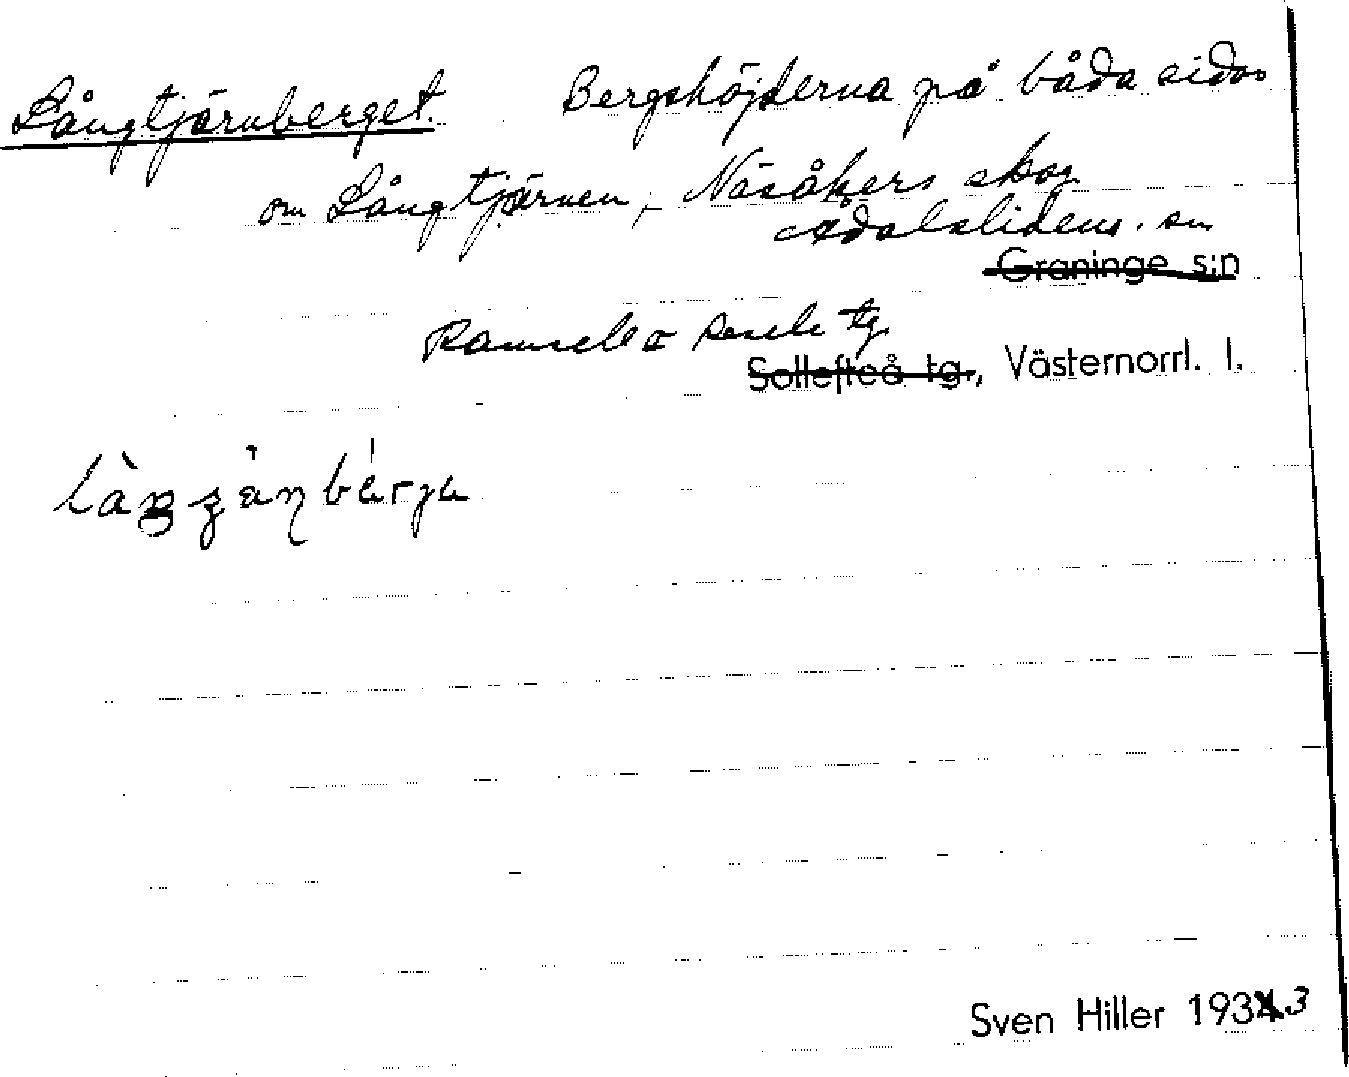 Långtjärnberget. Bergshöjderna på båda sidor
om Långtjärnen, Näsåkers skog
Ådalslidens sn
Graninge s:n
Ramsele o Resele tg
Sollefteå tg., Västernorrl. l.
Sven Hiller 1934 3